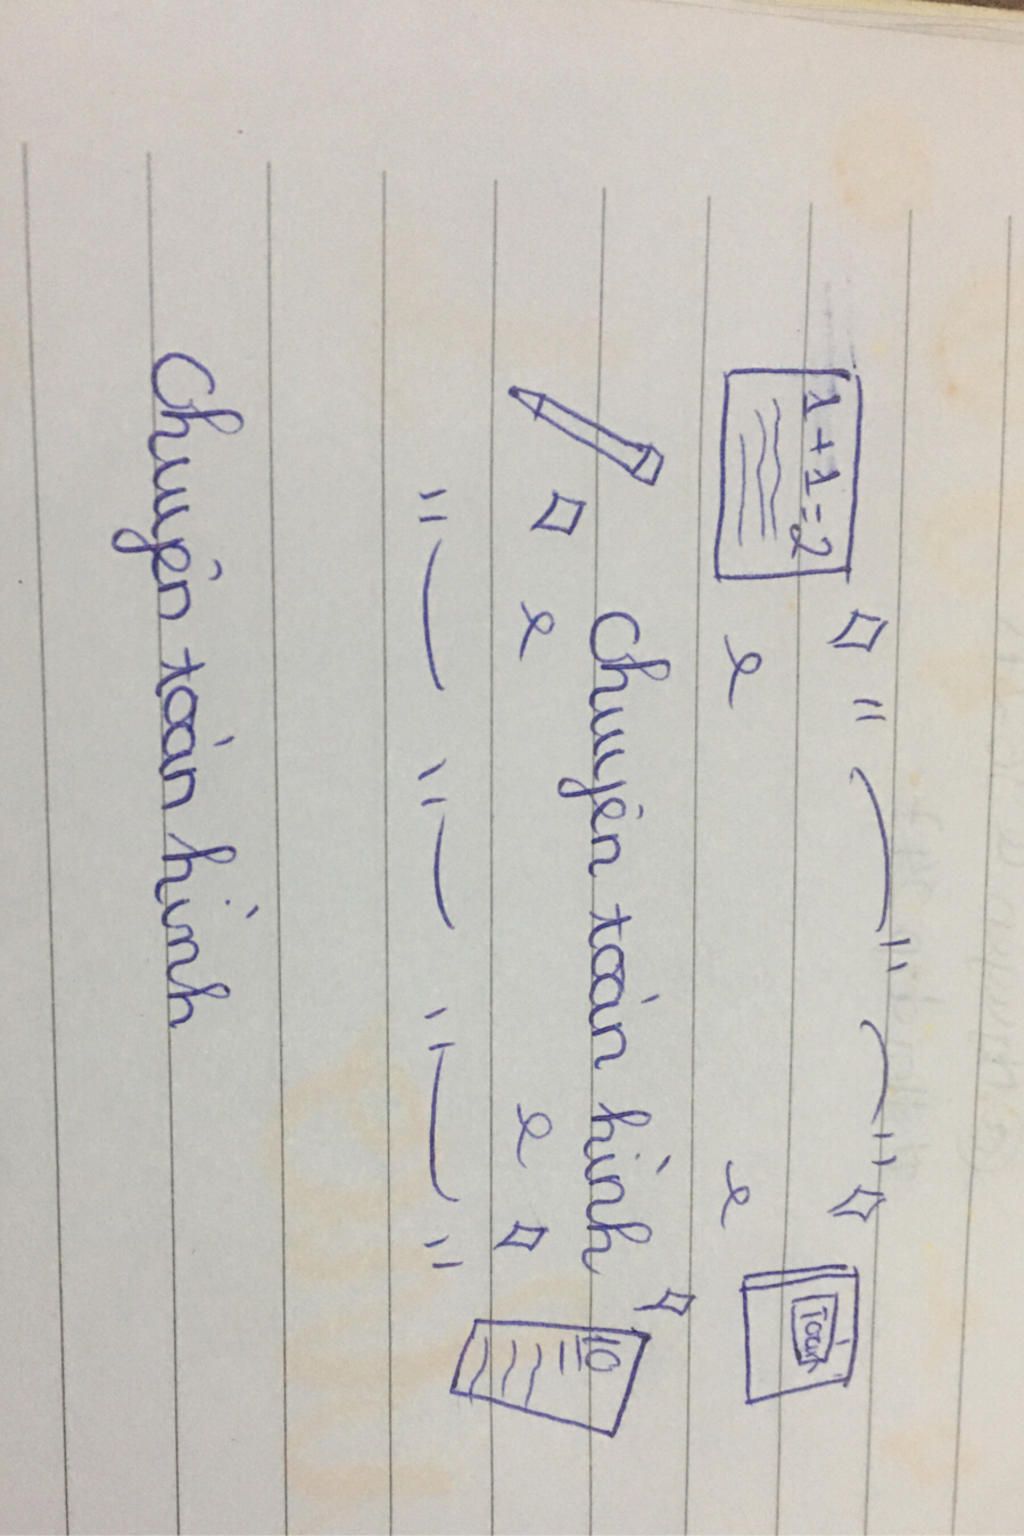 1+1=2
Toán
Chuyên toán hình
10
Chuyên toán hình